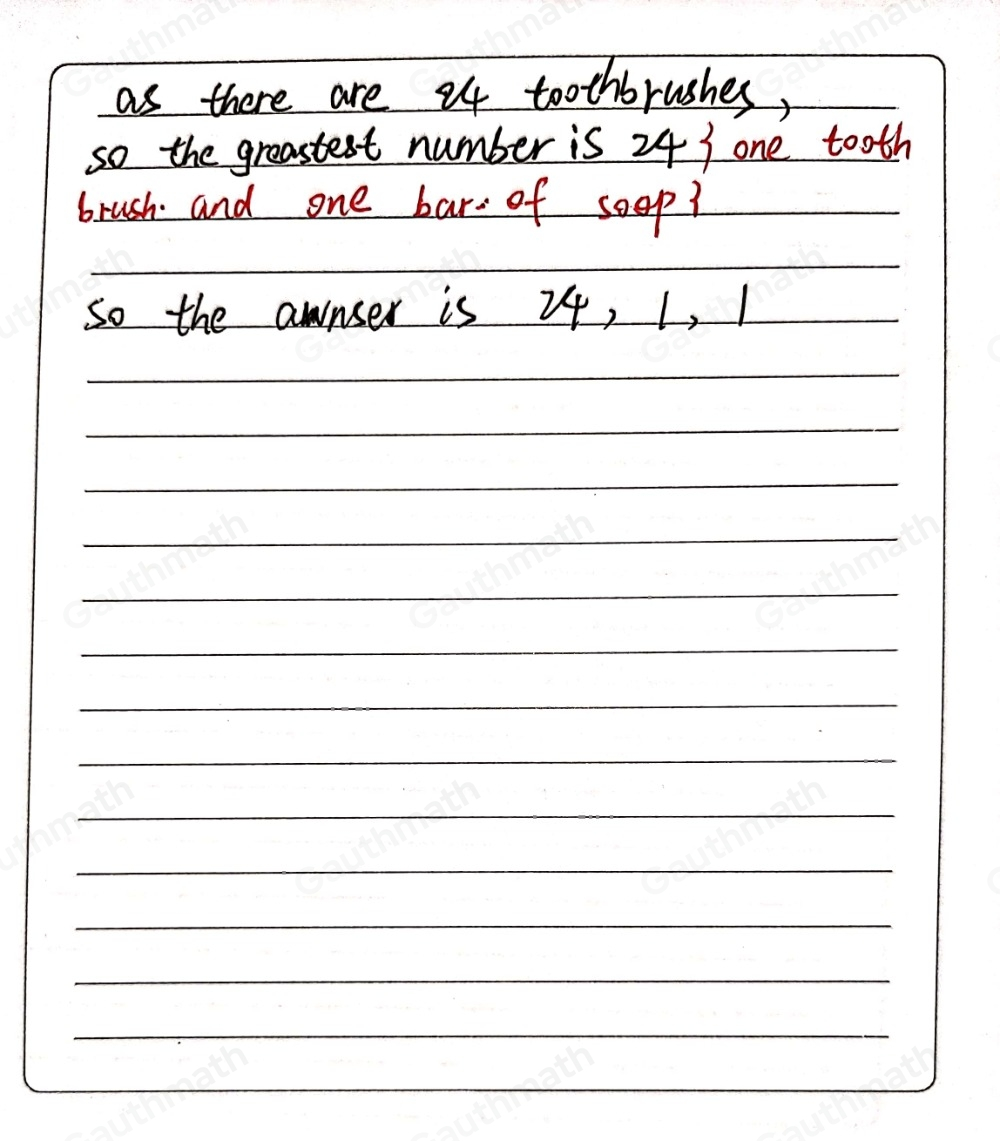 as there are 24 toothbrushes,
so the greastest number is 24 } one tooth
brush. and one bar. of soop }
so the awnser is 24, 1, 1